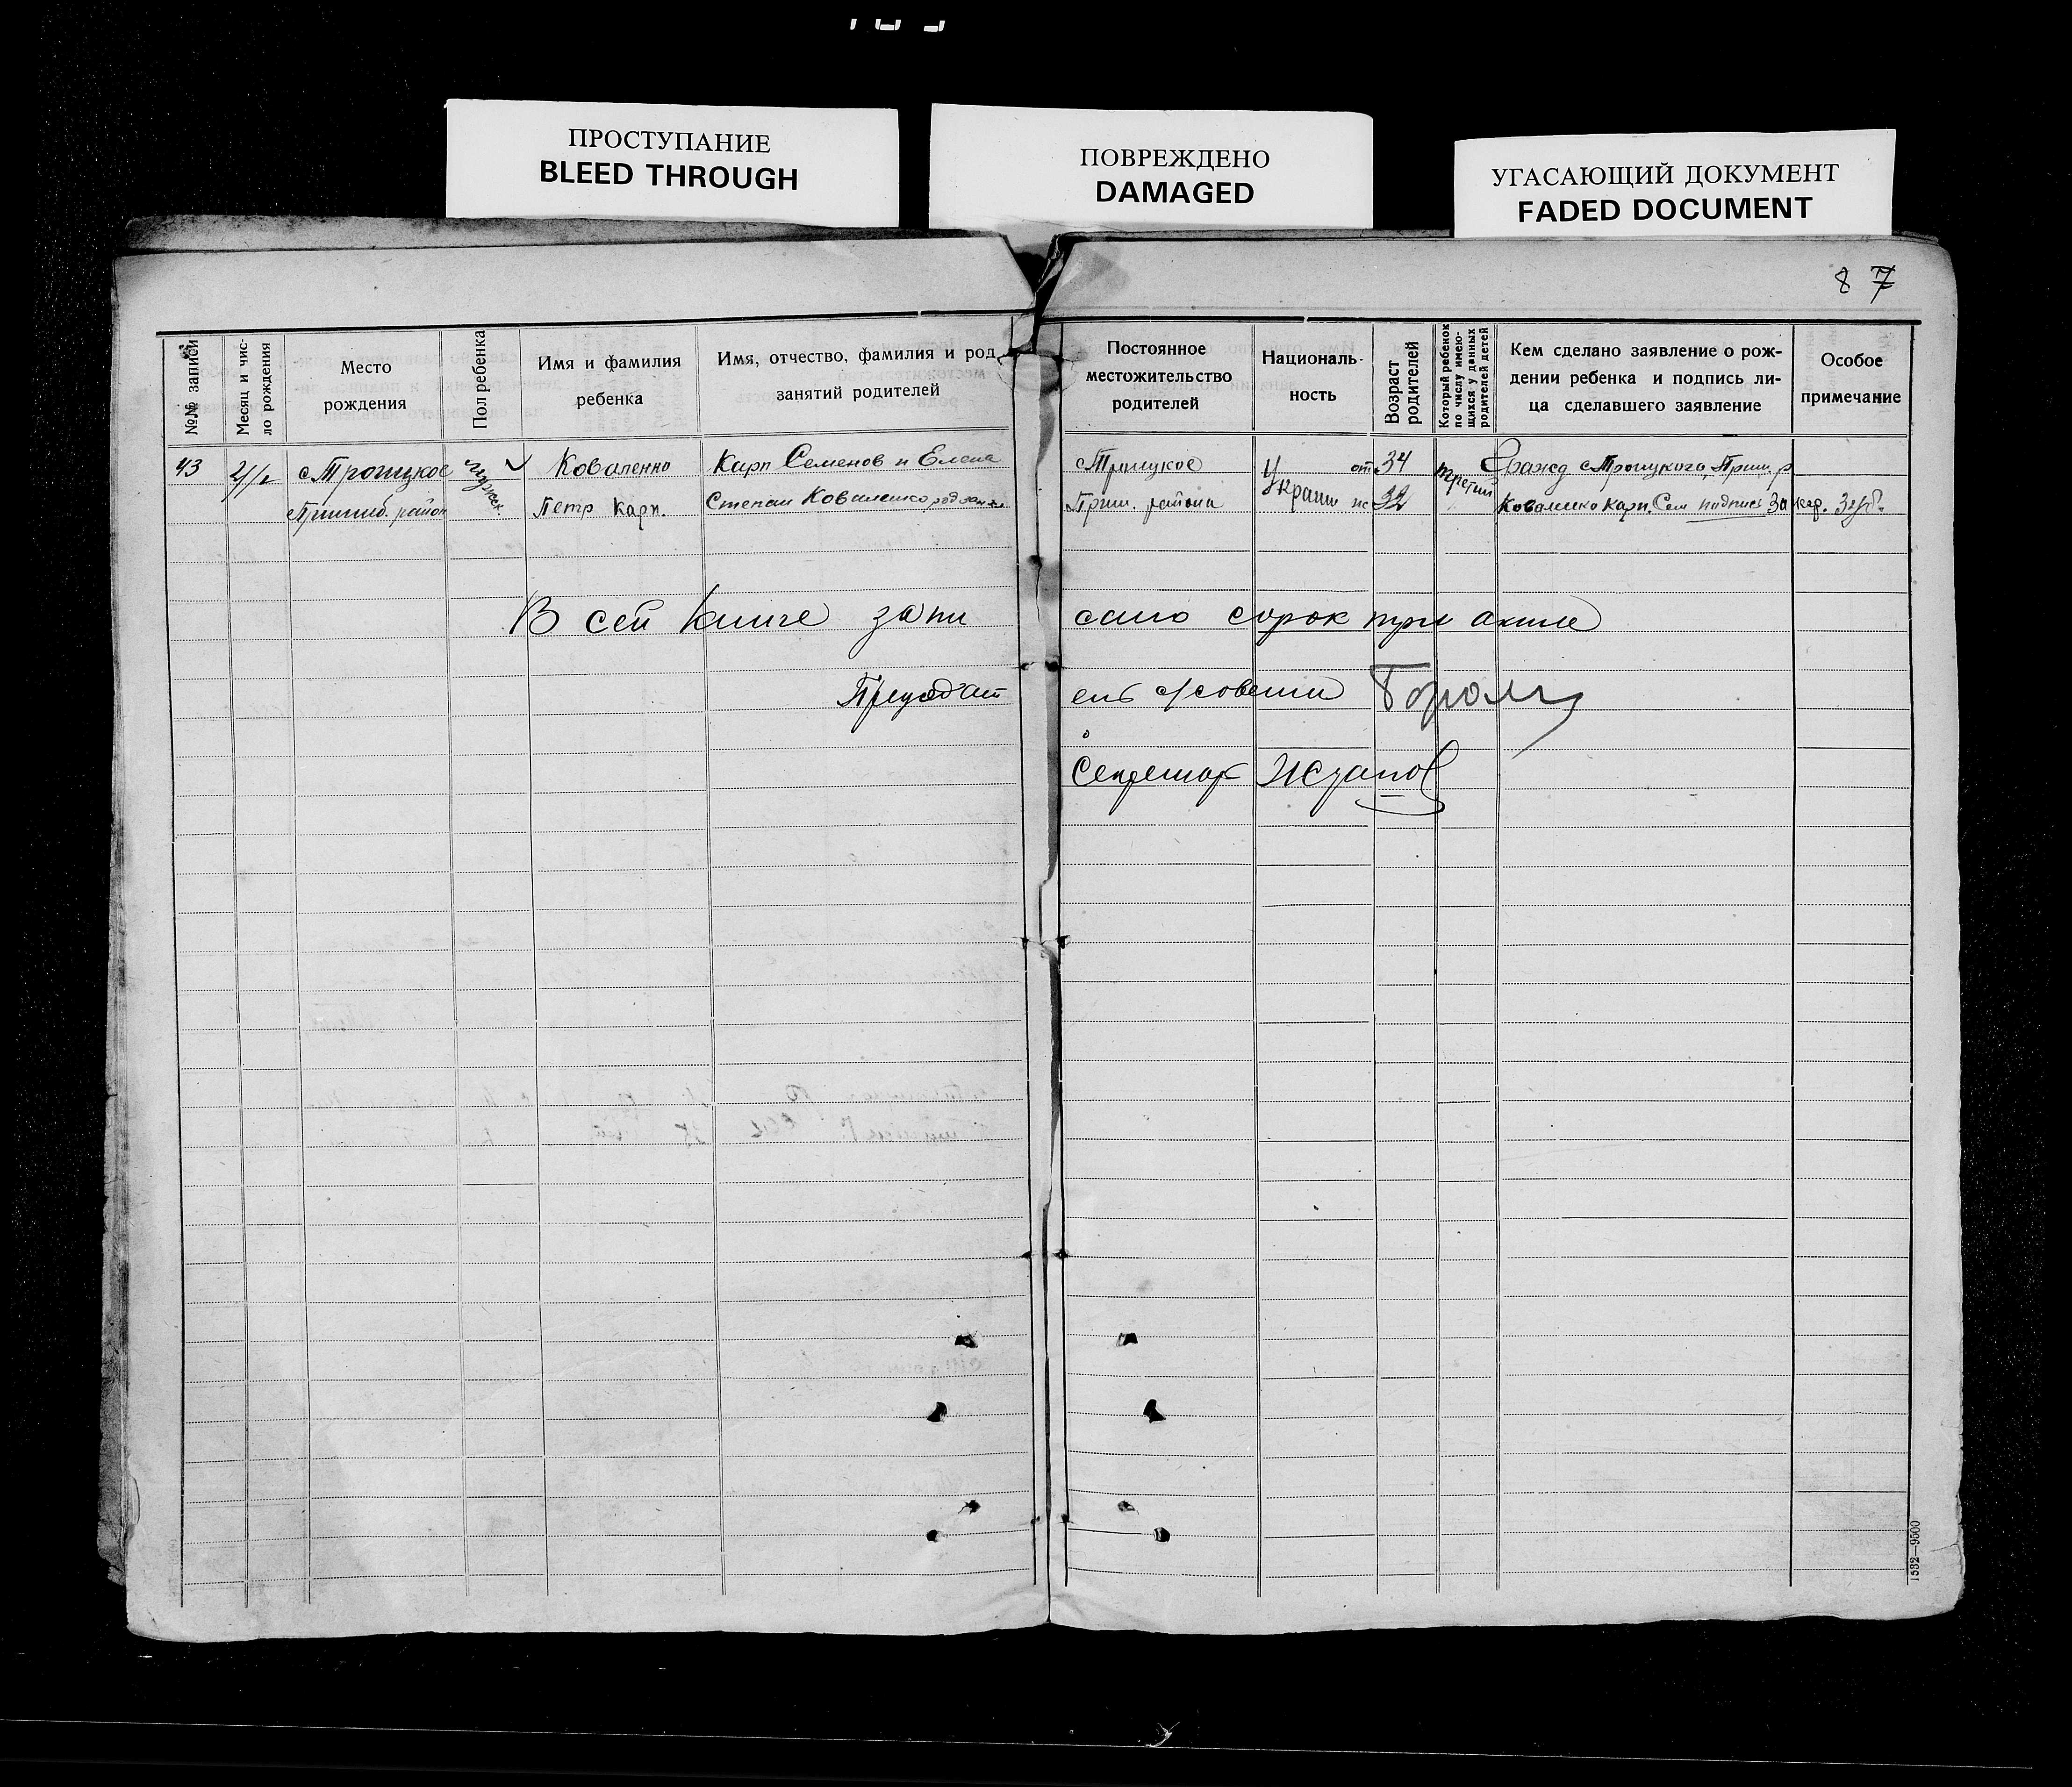 ПРОСТУПАНИЕ
BLEED THROUGH
ПОВРЕЖДЕНО
DAMAGED
УГАСАЮЩИЙ ДОКУМЕНТ
FADED DOCUMENT
87
№№ записи
Месяц и чис-
ло рождения
Место
рождения
Пол ребенка
Имя и фамилия
ребенка
Имя, отчество, фамилия и род
занятий родителей
Постоянное
местожительство
родителей
Националь-
ность
Возраст
родителей
Который ребенок
по числу имею-
щихся у данных
родителей детей
Кем сделано заявление о рож-
дении ребенка и подпись ли-
ца сделавшего заявление
Особое
примечание
43
с Троицкое
Пришиб. район
мужск.
Коваленко
Петр Карп.
Карп Семенов и Елена
Степан Коваленко
с Троицкое
Приш. района
Украин
от 34
32
третий
гражд с Троицкого, Приш. р
Коваленко Карп. Сем подпись За негр.
В сей книге запи
сано сорок три акта
Председат
ель с/совета
Секретар
1532—9500